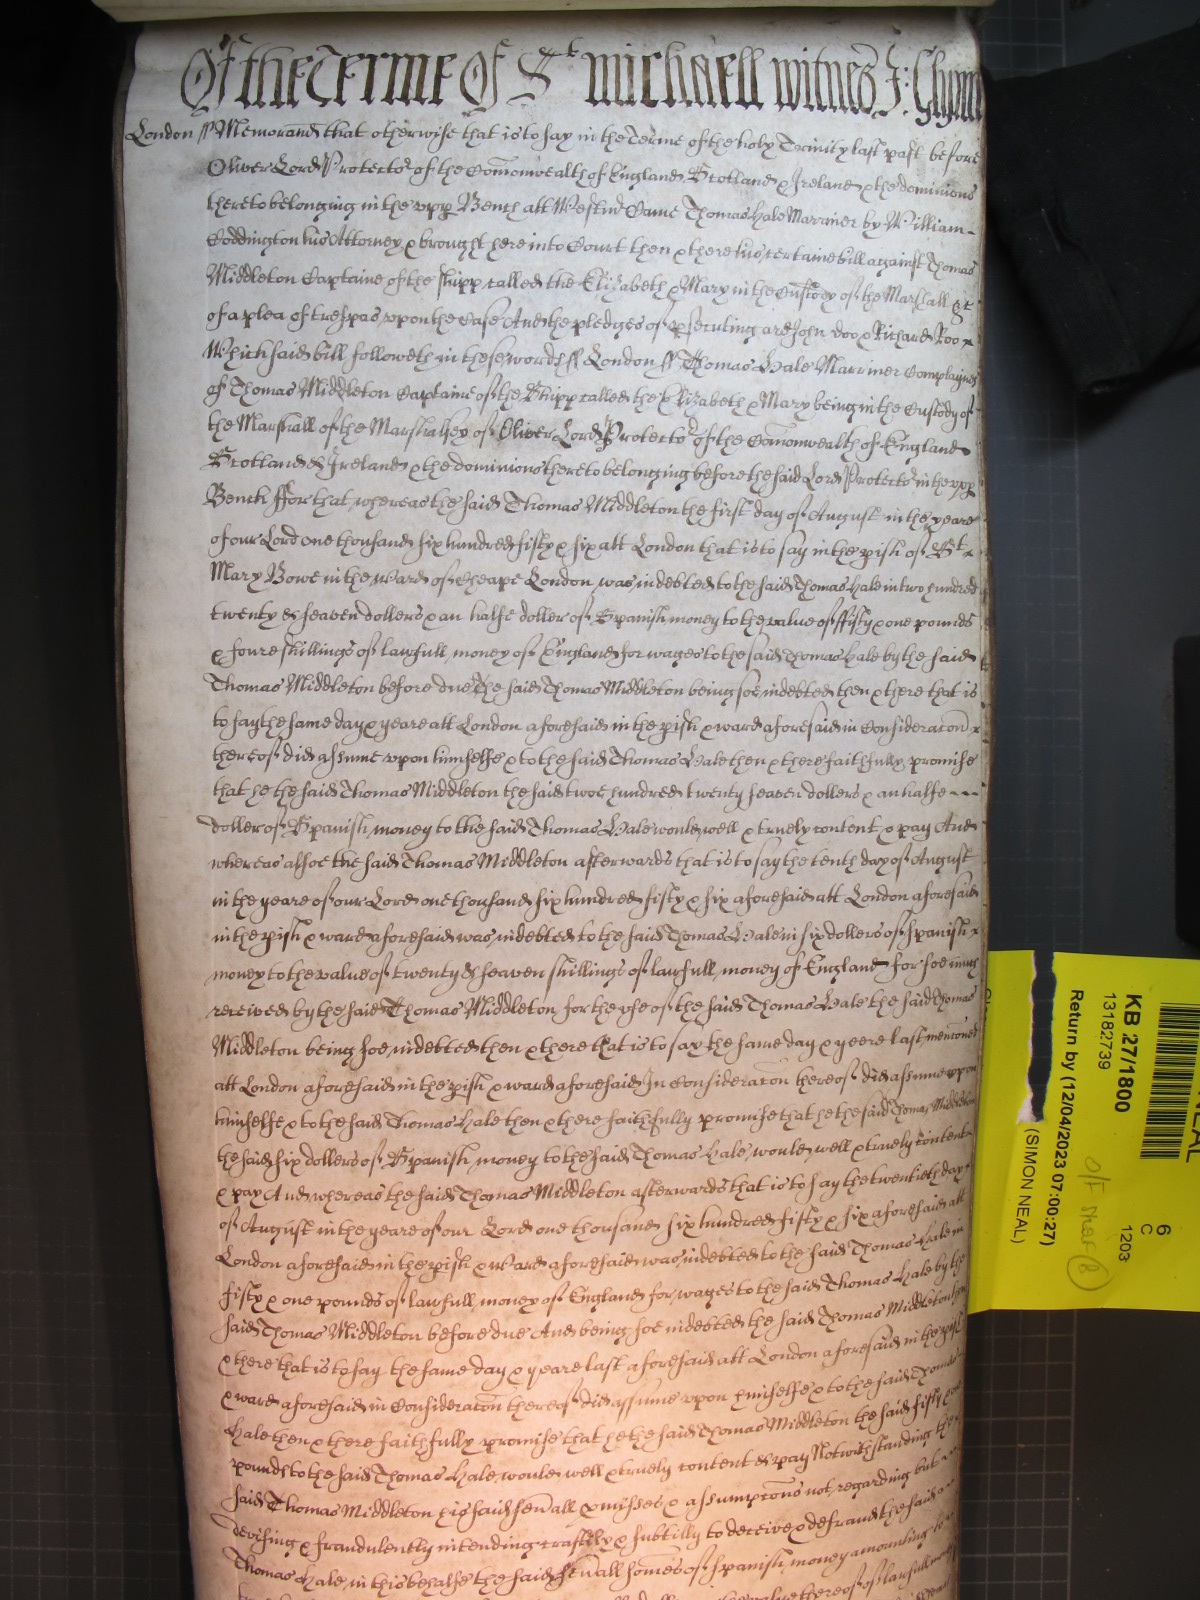 Of the Terme Of St michaell witnes J: Glynn
London ss Memorand that otherwise that is to say in the Terme of the holy Trinity last past before
Oliver Lord Protector of the Comonwealth of England Scotland & Ireland & the dominions
thereto belonging in the upp Bench att Westmr Came Thomas Hale Marriner by William
Coddington his Attorney & brought here into Court then & there his certaine bill against Thomas
Middleton Captaine of the shipp called the Elizabeth & Mary in the Custody of the Marshall &c
of a plea of trespas upon the Case And the pledges of psecuting are John doo & Richard Roo
Which said bill followeth in these words ss London ss Thomas Hale Marriner Complaynes
of Thomas Middleton Captaine of the Shipp called the Elizabeth & Mary being in the Custody of
the Marshall of the Marshalsey of Oliver Lord Protector of the Comonwealth of England
Scotland & Ireland & the dominions thereto belonging before the said Lord Protector in the upp
Bench ffor that whereas the said Thomas Middleton the first day of August in the yeare
of our Lord one thousand six hundred fifty & six att London that is to say in the pish of St
Mary Bowe in the Ward of Cheape London was indebted to the said Thomas Hale in two hundred
twenty & seaven dollers & an halfe doller of Spanish money to the value of ffifty & one pounds
& foure shillings of lawfull money of England for wages to the said Thomas Hale by the said
Thomas Middleton before due The said Thomas Middleton being soe indebted then & there that is
to say the same day & yeare att London aforesaid in the pish & ward aforesaid in Consideracon
thereof did assume upon himselfe & to the said Thomas Hale then & there faithfully promise
that he the said Thomas Middleton the said twoe hundred twenty seaven dollers & an halfe
doller of Spanish money to the said Thomas Hale would well & truely content & pay And
whereas alsoe the said Thomas Middleton afterwards that is to say the tenth day of August
in the yeare of our Lord one thousand six hundred fifty & six aforesaid att London aforesaid
in the pish & ward aforesaid was indebted to the said Thomas Hale in six dollers of Spanish
money to the value of twenty & seaven shillings of lawfull money of England for soe much
received by the said Thomas Middleton for the use of the said Thomas Hale the said Thomas
Middleton being soe indebted then & there that is to say the same day & yeere last menconed
att London aforesaid in the pish & ward aforesaid In Consideracon thereof did assume upon
himselfe & to the said Thomas Hale then & there faithfully promise that he the said Thomas Middleton
the said six dollers of Spanish money to the said Thomas Hale would well & truely content
& pay And whereas the said Thomas Middleton afterwards that is to say the twentieth day
of August in the yeare of our Lord one thousand six hundred fifty & six aforesaid att
London aforesaid in the pish & Ward aforesaid was indebted to the said Thomas Hale in
fifty & one pounds of lawfull money of England for wages to the said Thomas Hale by the
said Thomas Middleton before due And being soe indebted the said Thomas Middleton then
& there that is to say the same day & yeare last aforesaid att London aforesaid in the pish
& ward aforesaid in Consideracon thereof did assume upon himselfe & to the said Thomas
Hale then & there faithfully promise that he the said Thomas Middleton the said fifty & one
pounds to the said Thomas Hale would well & truely content & pay Notwithstanding the
said Thomas Middleton his said sevall pmisses & assumpcons not regarding but
devising & fraudulently intending craftily & subtilly to deceive & defraud the said
Thomas Hale in this behalfe the said sevall somes of Spanish money amounting to
KB 27/1800
13182739
Return by (12/04/2023 07:00:27)
(SIMON NEAL)
6
C
1203